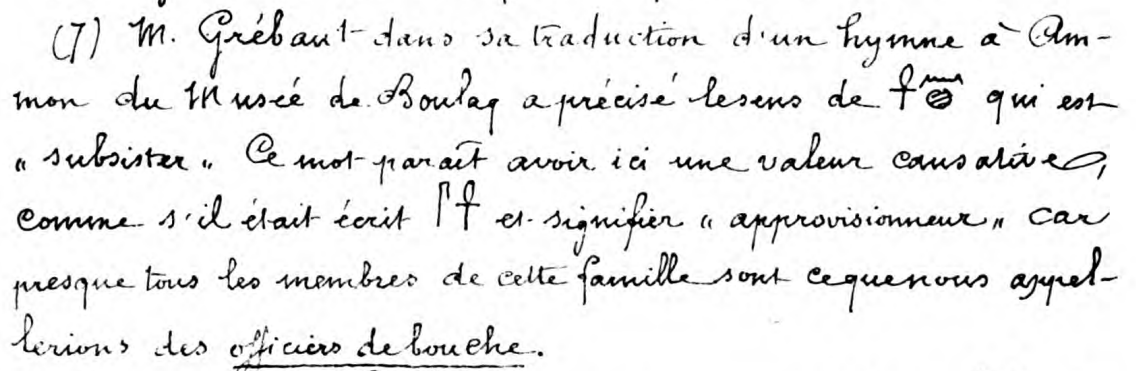 (7) M. Grébaut dans sa traduction d'un hymne à Am-
mon du Musée de Boulaq a précisé le sens de 𓋹𓈖𓐍 qui est
„ subsister „ Ce mot paraît avoir ici une valeur causative,
comme s'il était écrit 𓋴𓋹 et signifier „ approvisionneur „ car
presque tous les membres de cette famille sont ce que nous appel-
lerions des officiers de bouche.